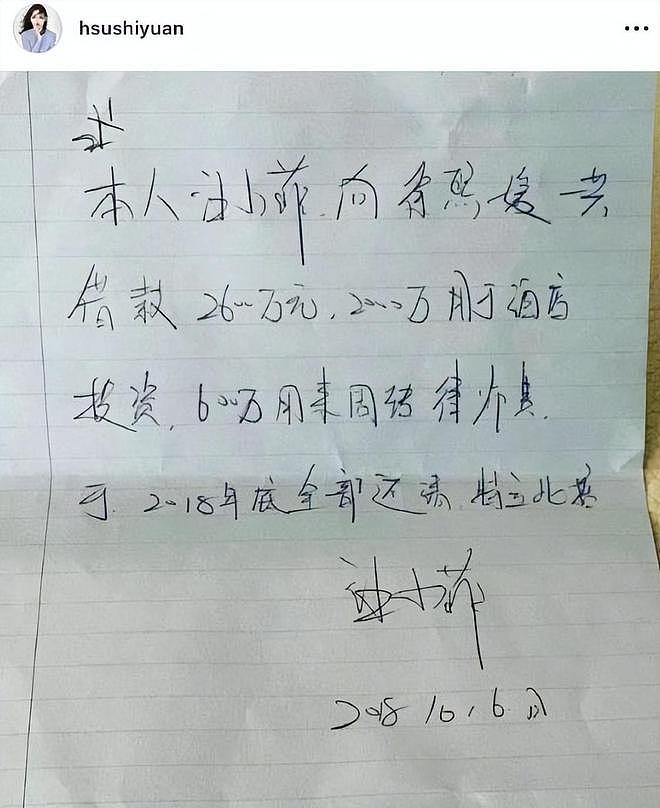 hsushiyuan
本人汪小菲,向徐熙媛共
借款2600万元,2000万用于酒店
投资,600万用来周转律师
于2018年底全部还清,特立此
汪小菲
2018 10, 6.日